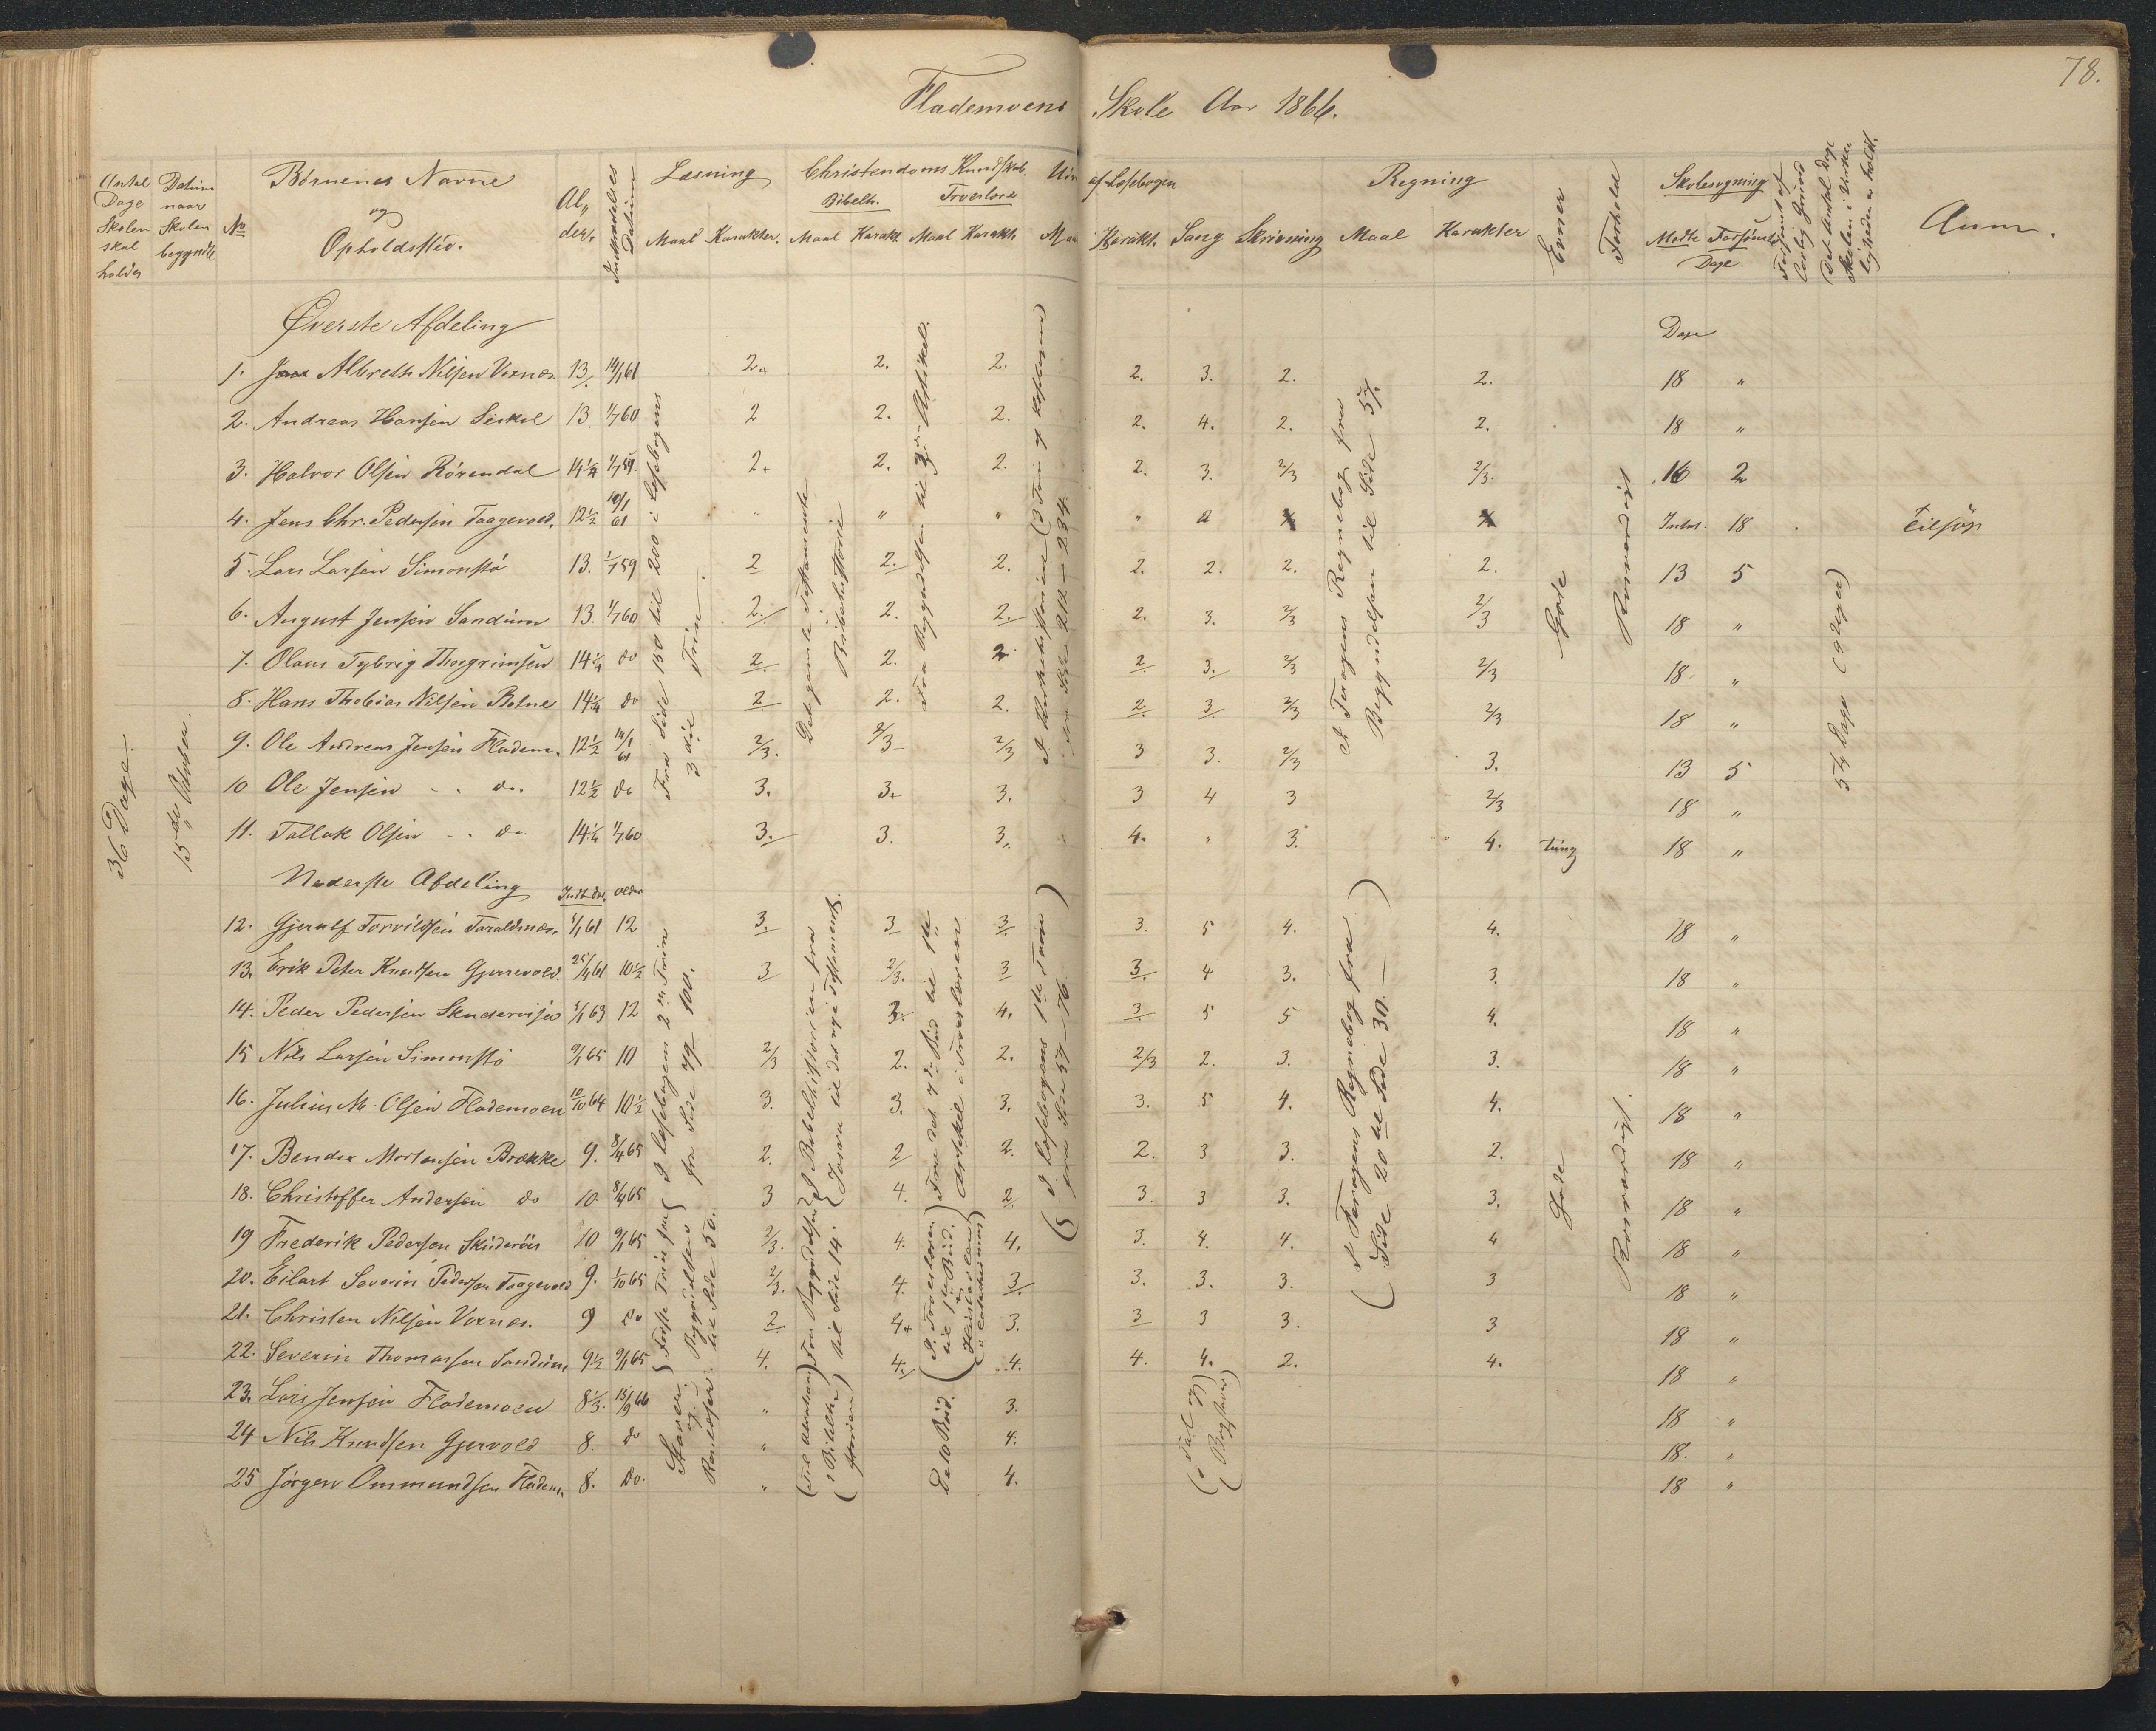 78.
Flademoens Skole Aar 1866.
Antal Dage Skolen skal holdes
Datum naar Skolen begyndte
No
Børnenes Navne og Opholdssted.
Al„ der.
Indmeldelses Datum
Læsning
Maal Karakter.
Christendoms Kundskab.
Bibelh. Troeslære
Maal Karakt. Maal Karakt.
af Læsebogen
Karakt. Sang Skrivning
Regning
Maal Karakter
Evner
Forhold
Skolesøgning
Mødte Forsømte
Dage.
Forsømt af
Det Antal Dage Skolen i Virkelighed er holdt.
Anm.
36 Dage.
15de October.
Øverste Afdeling
Dage
1. Albreth Nilsen Voxnæs 13 14/1 61 2. 2. 2. 2. 3. 2. 2. 18 "
2. Andreas Hansen 13. 1/7 60 2 2. 2. 2. 4. 2. 2. 18 "
3. Halvor Olsen Rørendal 14 1/2 1/7 59. 2. 2. 2. 2. 3. 2/3 2/3. 16 2
4. Jens Chr. Pedersen Taagevold. 12 1/2 " " " " 18
5. Lars Larsen Simonstø 13. 1/7 59 2 2. 2. 2. 2. 2. 2. 13 5
6. August Jensen Sandum 13. 1/7 60 2. 2. 2. 2. 3. 2/3 2/3 18 "
7. Olaus Tybrig Thorgrimsen 14 1/4 do 2. 2. 2 2 3. 2/3 2/3 18 "
8. Hans Thobias Nilsen 14 1/4 do 2 2. 2. 2 3 2/3 2/3 18 "
9. Ole Andreas Jensen Fladem. 12 1/2 14/1 61 2/3. 2/3 2/3 3 3. 2/3 3. 13 5
10 Ole Jensen do. 12 1/2 do 3. 3. 3. 3 4 3 2/3 18 "
11. Tallak Olsen do. 14 1/4 1/7 60 3. 3. 3. 4. " 3. 4. tung 18 "
Fra Side 150 til 200 i Læsebogens 3die Trin.
Det gamle Testamente i Bibelhistorie
Fra Begyndelsen til 3die Artikel.
I Kirkehistorien (3 Trin af Læsebogen fra Side 212 – 234
I Foragens Regnebog fra Begyndelsen til Side 57.
Gode
Roesværdigt
54 Dage (9 Uger)
Nederste Afdeling
Indt. Alder
12. Gjerulf Torvildsen Taraldsnæs. 5/1 61 12 3. 3 3 3. 5 4. 4. 18 "
13. Erik Peter Knudsen Gjerrevold. 25/4 61 10 1/2 3 2/3. 3 3. 4 3. 3. 18 "
14. Peder Pedersen 5/1 63 12 3. 4. 3 5 5 4. 18 "
15 Nils Larsen Simonstø 9/1 65 10 2/3 2. 2. 2/3 2. 3. 3. 18 "
16. Julius M. Olsen Flademoen 10/10 64 10 1/2 3. 3. 3. 3. 5 4. 4. 18 "
17. Bendix Mortensen Brække 9. 8/4 65 2. 2 2. 2. 3 3. 2. 18 "
18. Christoffer Andersen do 10. 8/4 65 3 4. 2 3. 3 3. 3. 18 "
19 Frederik Pedersen 10 9/1 65 2/3. 4. 4. 3. 4. 4. 4 18 "
20. Eilart Severin Pedersen Taagevold 9. 1/10 65 2/3. 4. 3 3. 3. 3. 3 18 "
21. Christen Nilsen Voxnæs. 9 do 2. 4. 3. 3 3 3. 3 18 "
22. Severin Thomassen Sandum 9 1/2 9/1 65 4. 4. 4. 4. 4. 2. 4. 18 "
23. Lars Jensen Flademoen 8 1/3. 15/9 66 " 3. 18 "
24 Nils Knudsen Gjervold 8. do " 4. 18. "
25 Jørgen Ommundsen Fladem. 8. do. " 4. 18 "
I Læsebogens 2det Trin fra Side 79–100.
Første Trin fra Begyndelsen til Side 50.
Staver og
I Bibelhistorien fra Josva til det nye Testamente.
Fra Begyndelsen til Side 14.
(Til Abraham i Bibelhistorien)
Fra det 4de Bud til 1ste Artikel i Troeslæren
De 10 Bud.
(I Læsebogens 1ste Trin fra Side 57–76.)
(I Foragens Regnebog fra Side 20 til Side 30.)
Gode
Roesværdigt.